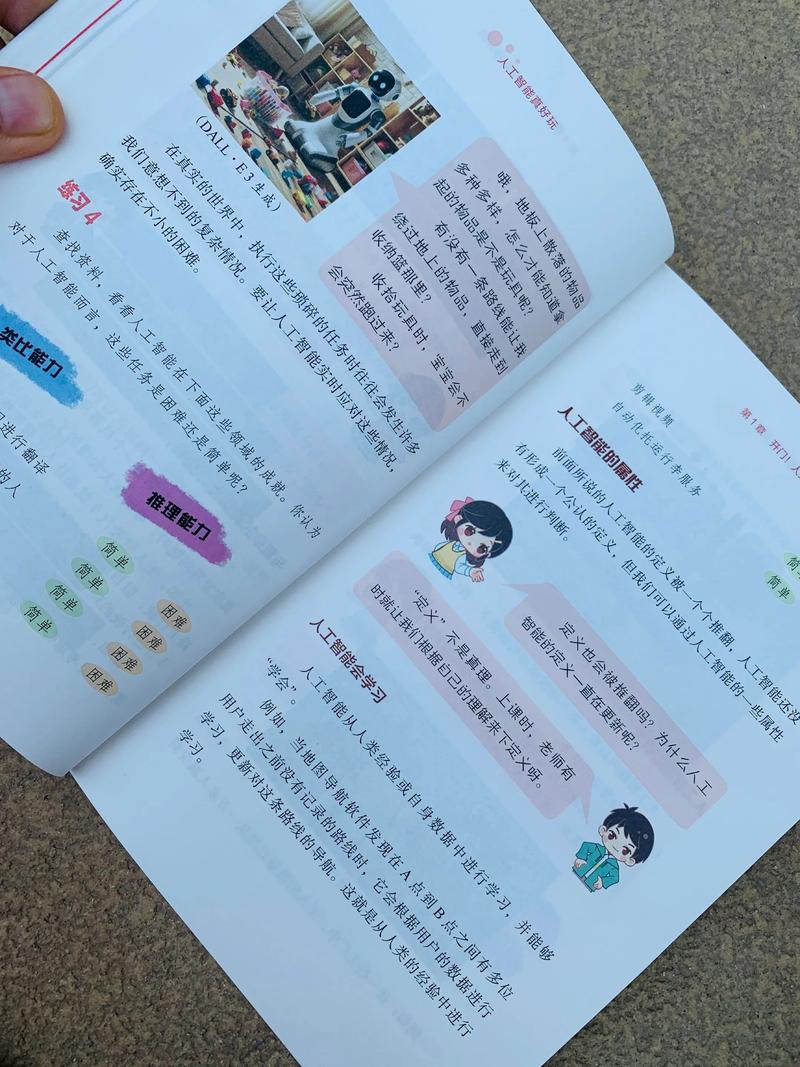 人工智能真好玩
(DALL·E 3 生成)
哦，地板上散落的物品
多种多样，怎么才能知道拿
起的物品是不是玩具呢？
有没有一条路线能让我
绕过地上的物品，直接走到
收纳篮那里？
收拾玩具时，宝宝会不
会突然跑过来？
在真实的世界中，执行这些琐碎的任务时往往会发生许多
我们意想不到的复杂情况。要让人工智能实时应对这些情况，
确实存在不小的困难。
练习 4
查找资料，看看人工智能在下面这些领域的成就。你认为
对于人工智能而言，这些任务是困难还是简单呢？
类比能力
进行翻译
的人
推理能力
简单
简单
简单
简单
困难
困难
困难
困难
第1章 开门！人
剪辑视频
自动化托运行李服务
简
简单
人工智能的属性
前面所说的人工智能的定义被一个个推翻，人工智能还没
有形成一个公认的定义，但我们可以通过人工智能的一些属性
来对其进行判断。
定义也会被推翻吗？为什么人工
智能的定义一直在更新呢？
“定义”不是真理。上课时，老师有
时就让我们根据自己的理解来下定义呀。
人工智能会学习
人工智能从人类经验或自身数据中进行学习，并能够
“学会”。
例如，当地图导航软件发现在 A 点到 B 点之间有多位
用户走出之前没有记录的路线时，它会根据用户的数据进行
学习，更新对这条路线的导航。这就是从人类的经验中进行
学习。